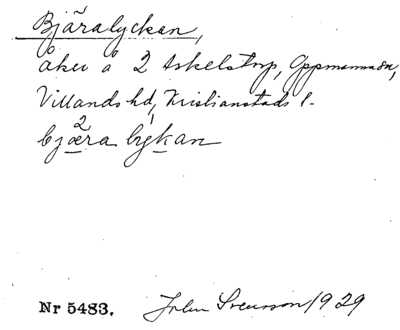 Bjäralyckan,
åker å 2 Askelstorp, Oppmanna,
Villands hd, Kristianstads l.
bjæra lykan
Nr 5483. John Svensson 1929